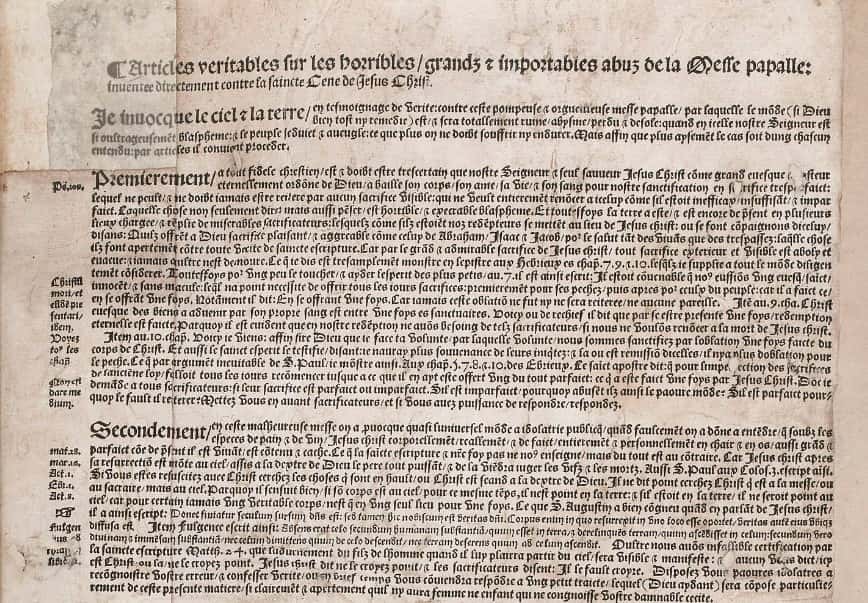 ¶ Articles veritables sur les horribles / grandz ⁊ importables abuz de la Messe papalle:
inuentee directement contre la saincte Cene de Jesus Christ.
Je inuocque le ciel ⁊ la terre / en tesmoignage de Verite: contre ceste pompeuse ⁊ orgueilleuse messe papalle / par laquelle le mōde (si Dieu
bien tost ny remedie) est / ⁊ sera totallement ruine / abysme / perdu ⁊ desole: quand en icelle nostre Seigneur est
si oultrageusemēt blaspheme: ⁊ le peuple seduict ⁊ aueugle: ce que plus on ne doibt souffrir ny endurer. Mais affin que plus aysemēt le cas soit dung chascun
entendu: par articles il conuient proceder.
Premierement / a tout fidele chrestien / est ⁊ doibt estre trescertain que nostre Seigneur ⁊ seul sauueur Jesus Christ cōme grand euesque
Ps. 109.
eternellement ordōne de Dieu / a baille son corps / son ame / sa Vie / ⁊ son sang pour nostre sanctification en
lequel ne peult / ⁊ ne doibt iamais estre reitere par aucun sacrifice Visible: qui ne Veult entierement renōcer a icelluy cōme sil estoit inefficax / insuffisāt / ⁊ impar
faict. Laquelle chose non seulement dire mais aussi pēser / est horrible / ⁊ execrable blaspheme. Et toutesfoys la terre a este / ⁊ est encore de pſent en plusieurs
lieux chargee / ⁊ rēplie de miserables sacrificateurs: lesquelz cōme silz estoiēt noz redēpteurs se mettēt au lieu de Jesus christ: ou se font cōpaignons dicelluy /
disans: Quilz offrēt a Dieu sacrifice plaisant / ⁊ aggreable cōme celuy de Abraham / Isaac ⁊ Jacob / po² le salut tāt des Viuās que des trespassez: laq̄lle chose
ilz font apertement cōtre toute Verite de saincte escripture. Car par le grād ⁊ admirable sacrifice de Jesus christ / tout sacrifice exterieur et Visible est aboly et
euacue: ⁊ iamais aultre nest demoure. Ce q̄ ie dis est tresamplement mōstre en lepistre aux Hebrieux es chap. 7. 9. ⁊ .10. lesq̄lz ie supplie a tout le mōde diligen
temēt cōsiderer. Toutesfoys po² Vng peu le toucher / ⁊ ayder lesperit des plus petis / au .7. il est ainsi escrit: Il estoit cōuenable q̄ no² eussiōs Vng euesq̄ / sainct /
innocēt / ⁊ sans macule: leq̄l na point necessite de offrir tous les iours sacrifices: premierement pour ses pechez / puis apres po² ceulx du peuple: car il a faict ce /
en se offrāt Vne foys. Notāment il dit: En se offrant Vne foys. Car iamais ceste oblatiō ne fut ny ne sera reiteree / ne aucune pareille. Itē au .9. cha. Christ
euesque des biens a aduenir par son propre sang est entre Vne foys es sanctuaires. Voicy ou de rechief il dit que par se estre presente Vne foys / redemption
eternelle est faicte. Parquoy il est euidēt que en nostre redēption ne auōs besoing de telz sacrificateurs / si nous ne Voulōs renōcer a la mort de Jesus christ.
Item au .10. chap. Voicy ie Viens: affin dire Dieu que ie face ta Volunte / par laquelle Volunte / nous sommes sanctifiez par loblation Vne foys faicte du
corps de Christ. Et aussi le sainct esperit le testifie / disant: ie nauray plus souuenance de leurs iniqtez: ⁊ la ou est remissiō dicelles / il nya plus doblation pour
le peche. Ce q̄ par argumēt ineuitable de S. Paul ie mōstre ainsi. Aux chap. 5. 7. 8. ⁊ .10. des Ebrieux. Le sainct apostre dit: q̄ pour limpe
de lancienne loy / falloit tous les iours recōmencer iusque a ce que il en eyt este offert Vng du tout parfaict: ce q̄ a este faict Vne foys par Jesus Christ. Dōc ie
demāde a tous sacrificateurs: si leur sacrifice est parfaict ou imparfaict. Sil est imparfaict / pourquoy abusēt ilz ainsi le paoure mōde: Sil est parfaict pour-
quoy le fault il reiterer: Mettez Vous en auant sacrificateurs / et si Vous auez puissance de respondre / respondez.
Christ⁹
mori / et
Voyez
to² les
chap.
Secondement / en ceste malheureuse messe on a / puocque quasi luniuersel mōde a idolatrie publicq̄ / quād faulcemēt on a dōne a entēdre / q̄ soubz les
especes de pain / ⁊ de Vin / Jesus christ corporellemēt / reallemēt / ⁊ de faict / entieremēt ⁊ personnellement en chair ⁊ en os / aussi grād ⁊
parfaict cōe de pſent il est Viuāt / est cōtenu ⁊ cache. Ce q̄ la saicte escripture ⁊ nr̄e foy pas ne no² enseigne / mais du tout est au cōtraire. Car Jesus christ apres
sa resurrectiō est mōte au ciel / assis a la dextre de Dieu le pere tout puissāt / ⁊ de la Viēdra iuger les Vifz ⁊ les mortz. Aussi S. Paul aux Colos. 3. escript aisi.
Si Vous estes resuscitez auec Christ cerchez les choses q̄ sont en hault / ou Christ est seand a la dextre de Dieu. Il ne dit point cerchez Christ q̄ est a la messe / ou
au sacraire / mais au ciel. Parquoy il sensuit bien / si sō corps est au ciel / pour ce mesme tēps / il nest point en la terre: ⁊ sil estoit en la terre / il ne seroit point au
ciel / car pour certain iamais Vng Veritable corps / nest q̄ en Vng seul lieu pour Vne foys. Ce que S. Augustin a bien cōgneu quād en parlāt de Jesus christ /
il a ainsi escript: Donec finiatur seculum sursum dn̄s est: sed tamen hic nobiscum est Veritas dn̄i. Corpus enim in quo resurrexit in Vno loco esse oportet / Veritas autē eius Vbiq̄
diffusa est. Item Fulgence escrit ainsi: Absens erat celo secundum humanam substantiā / quum esset in terra / ⁊ derelinquēs terram / quum ascēdisset in celum: secundum Vero
diuinam ⁊ immēsam substantiā / nec celum dimittens quum de celo descendit / nec terram deserens quum ad celum ascendit. Oultre nous auōs infallible certification par
la saincte escripture Math. 24. que laduenement du filz de lhomme quand il luy plaira partir du ciel / sera Visible ⁊ manifeste: ⁊ si aucun Vous dict / icy
est Christ ou la / ne le croyez point. Jesus christ dit ne le croyez point / ⁊ les sacrificateurs disent: Il le fault croyre. Disposez Vous paoures idolatres a
recōgnoistre Vostre erreur / ⁊ confesser Verite / ou en brief temps Vous cōuiendra respōdre a Vng petit traicte / lequel (Dieu aydant) sera cōpose particuliē-
rement de ceste presente matiere / si clairemēt ⁊ apertement quil ny aura femme ne enfant qui ne congnoisse Vostre damnable cecite.
mat. 28.
mar. 16.
Act. 1.
Ebr. 1.
Act. 3.
Fulgen